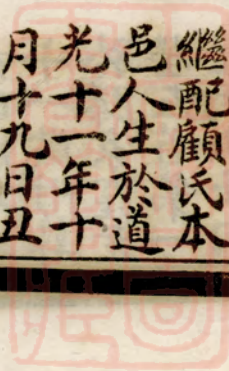 繼配顧氏本
邑人生於道
光十一年十
月十九日丑